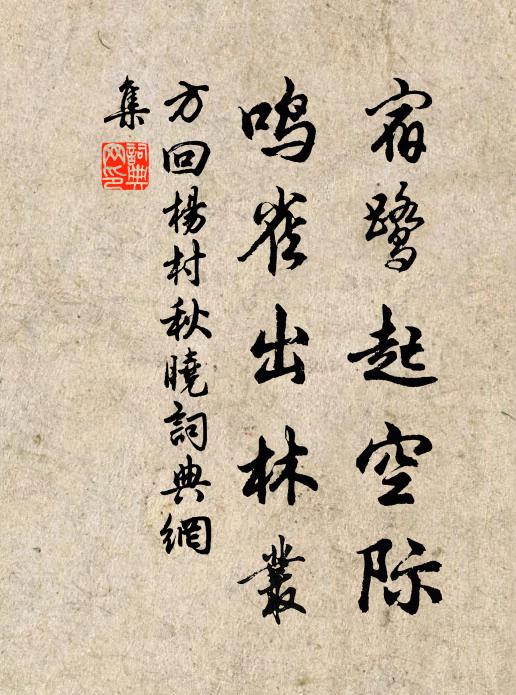 宿鹭起空际
鸣雀出林叢
方回杨村秋曉詞典網
集
詞典
网印